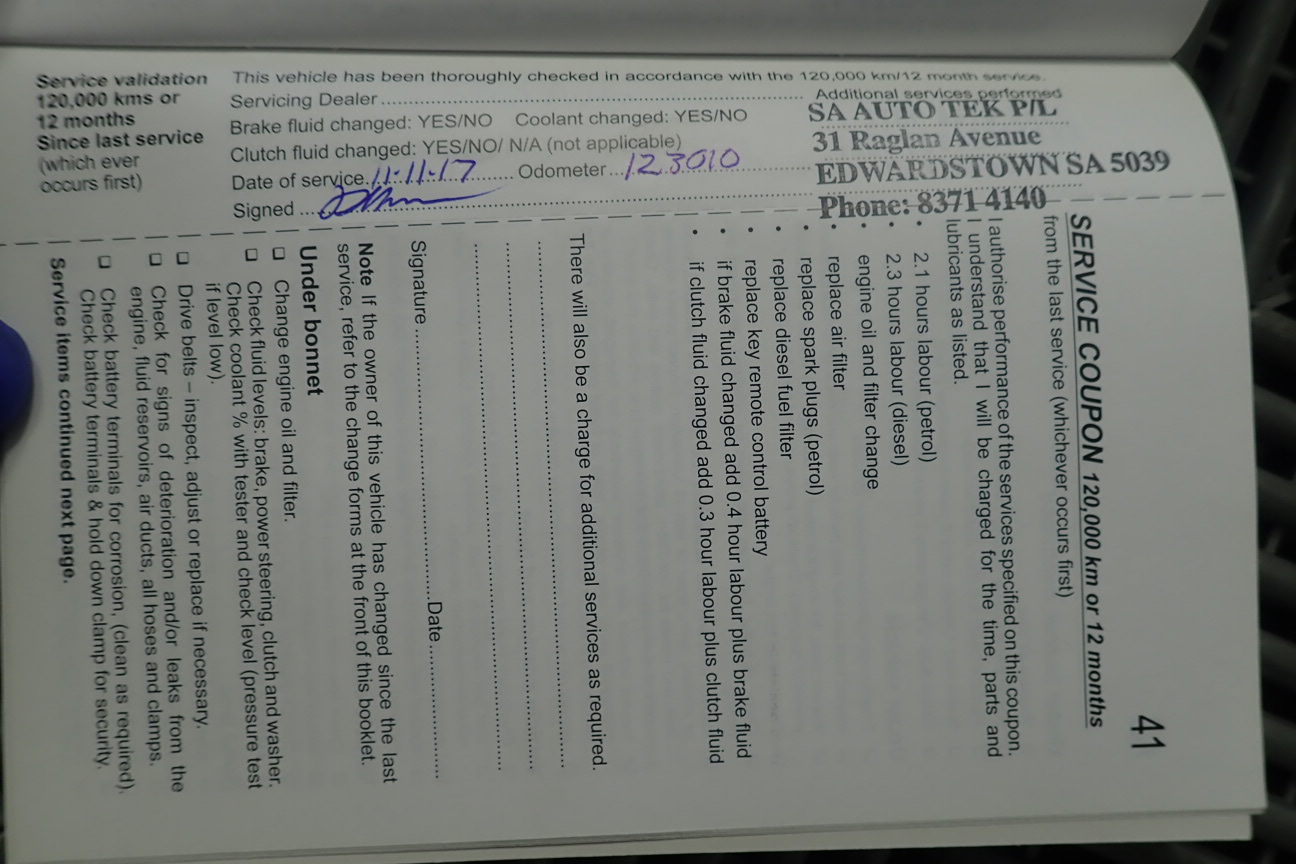 Service validation
120,000 kms or
12 months
Since last service
(which ever
occurs first)
This vehicle has been thoroughly checked in accordance with the 120,000 km/12 month service.
Servicing Dealer
Additional services performed
Brake fluid changed: YES/NO Coolant changed: YES/NO
Clutch fluid changed: YES/NO/ N/A (not applicable)
Date of service 11·11·17 Odometer 123010
Signed
SA AUTO TEK P/L
31 Raglan Avenue
EDWARDSTOWN SA 5039
Phone: 8371 4140
41
SERVICE COUPON 120,000 km or 12 months
from the last service (whichever occurs first)
I authorise performance of the services specified on this coupon.
I understand that I will be charged for the time, parts and
lubricants as listed.
• 2.1 hours labour (petrol)
• 2.3 hours labour (diesel)
• engine oil and filter change
• replace air filter
• replace spark plugs (petrol)
• replace diesel fuel filter
• replace key remote control battery
• if brake fluid changed add 0.4 hour labour plus brake fluid
• if clutch fluid changed add 0.3 hour labour plus clutch fluid
There will also be a charge for additional services as required.
Signature Date
Note If the owner of this vehicle has changed since the last
service, refer to the change forms at the front of this booklet.
Under bonnet
❑ Change engine oil and filter.
❑ Check fluid levels: brake, power steering, clutch and washer.
Check coolant % with tester and check level (pressure test
if level low).
❑ Drive belts – inspect, adjust or replace if necessary.
❑ Check for signs of deterioration and/or leaks from the
engine, fluid reservoirs, air ducts, all hoses and clamps.
❑ Check battery terminals for corrosion, (clean as required).
Check battery terminals & hold down clamp for security.
Service items continued next page.